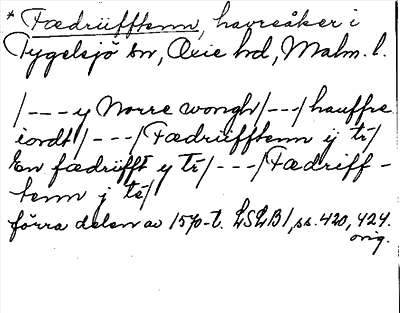 * Fædriifftenn, havreåker i
Tygelsjö sn, Oxie hd, Malm. l.
/--- y Norre wongh/---/hauffre
iordt/---/Fædriifftenn ÿ tr/
En fædriifft y tr/---/Fædriff-
tenn j te/
förra delen av 1570-t. LSLB1, ss. 420, 424.
orig.